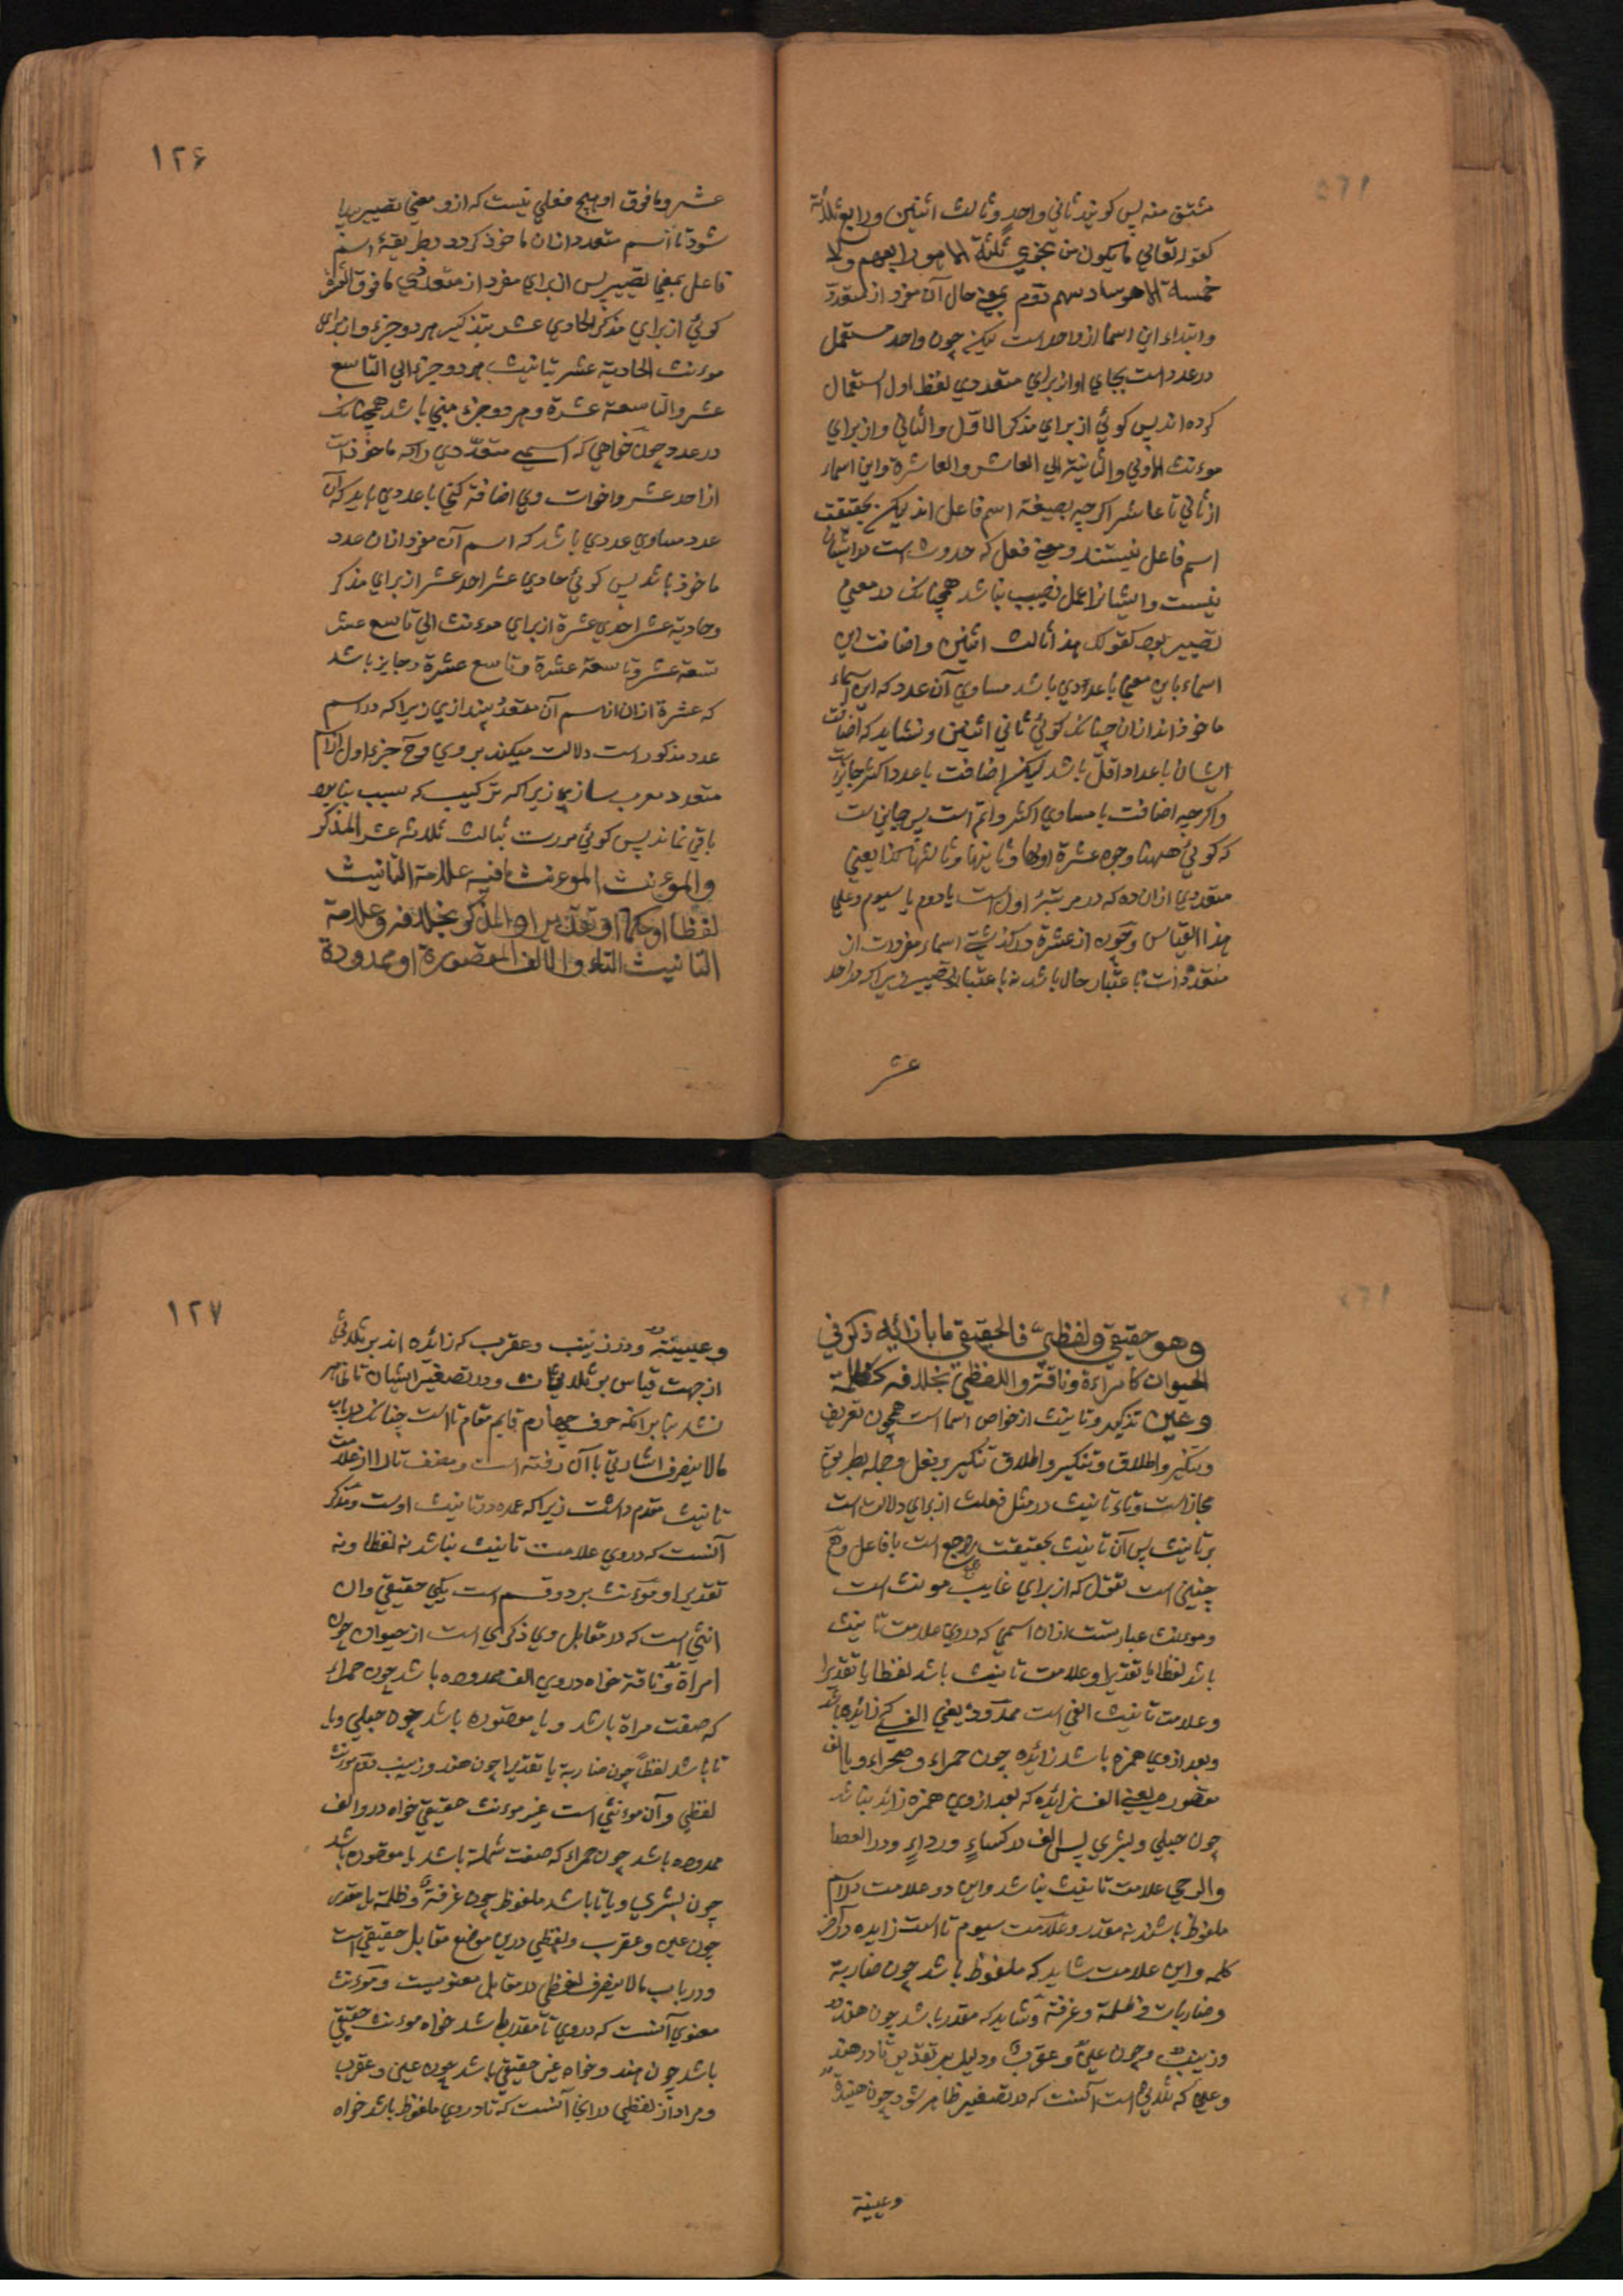 مشتق منه پس کویند ثاني واحدٍ وثالث اثنین ورابع ثلاثة
کقوله تعالی ما یکون من نجوي ثلثة الا هو رابعهم ولا
خمسة الا هو سادسهم دوّم بمعنی حال آن مفرد از متعدّد
وابتداء این اسما از واحد است لیکن چون واحد مستعمل
در عدد است بجاي او از براي متعددي لفظ اول استعمال
کرده اند پس کوئي از براي مذکر الاوّل والثاني واز براي
موءنث الاولي والثانیة الي العاشر والعاشرة واین اسماء
از ثاني تا عاشر اکرچه بصیغة اسم فاعل اند لیکن بحقیقت
اسم فاعل نیستند ومعنی فعل که حدوث است در ایشان
نیست وایشانرا عمل نصیب نباشد همچنانک در معني
تصییر بود کقولک هذا ثالث اثنین واضافت این
اسماء باین معنی با عددي باشد مساوي آن عدد که این اسماء
ماخوذ اند ازان چنانک کوئي ثاني اثنین ونشاید که اضافت
ایشان با عداد اقلّ باشد لیکن اضافت با عدد اکثر جایز است
واکرچه اضافت با مساوي اکثر واتم است پس جایز است
که کوئي ههنا وجوه عشرة اولها وثانیها وثالثها کذا یعني
متعددي ازان ده که در مرتبهٔ اول است یا دوم یا سیوم وعلي
هذا القیاس وچون از عشرة درکذشت اسماء مفردات از
متعددات با عتبار حال باشد نه با عتبار تصییر زیراکه در احد
عشر
۱۲۶
عشر وما فوق او هیچ فعلي نیست که ازو معني تصییر پیدا
شود تا اسم متعدد ازان ماخوذ کردد بطریقهٔ اسم
فاعل بمعني تصییر پس از براي مفرد از متعددي ما فوق العشرة
کوئي از براي مذکر الحادي عشر بتذکیر هر دو جزء واز براي
موءنث الحادیة عشر بتانیث هر دو جزء الي التاسع
عشر والتاسعة عشرة وهر دو جزء مبني باشد همچنانک
در عدد وچون خواهي که اسمی متعدّدي راکه ماخوذ است
از احد عشر واخوات وي اضافة کني با عددي باید که آن
عدد مساوي عددي باشد که اسم آن مفرد ازان عدد
ماخوذ باشد پس کوئي حادي عشر احد عشر از براي مذکر
وحادیة عشر احدي عشرة از براي موءنث الي تاسع عشر
تسعة عشر وتاسعة عشرة وتاسع عشرة وجایز باشد
که عشرة ازان از اسم آن متعدد بیندازي زیراکه در اسم
عدد مذکور است دلالت میکند بر وي وح جزء اول از اسم
متعدد معرب سازیم زیراکه ترکیب که سبب بنا بود
باقي نماند پس کوئي مررت بثالث ثلاثه عشر المذکر
والموءنث الموءنث ما فیه علامة التانیث
لفظا او حکما او تقدیرا والمذکر بخلافه وعلامة
التانیث التاء والالف المقصورة او ممدودة
وهو حقیقي ولفظي فالحقیقي ما بازائه ذکر في
الحیوان کامراءة وناقة واللفظي بخلافه کظلمة
وعین تذکیر وتانیث از خواص اسما است همچون تعریف
وتنکیر واطلاق وتنکیر واطلاق تنکیر بر فعل وجمله بطریق
مجاز است وتاء تانیث در مثل فعلت از براي دلالت است
بر تانیث پس آن تانیث بحقیقت راجع است با فاعل وهم
چنین است تفعل که از براي غایب موءنث است
وموءنث عبارتست ازان اسمي که در وي علامت تانیث
باشد لفظا یا تقدیرا وعلامت تانیث باشد لفظا یا تقدیرا
وعلامت تانیث الفي است ممدود یعني الفی که زائده باشد
وبعد ازوي همزه باشد زائده چون حمراء وصحراء ویا الف
مقصوره یعني الف زائده که بعد ازوي همزه زائد نباشد
چون حبلي وبشري پس الف در کساءٍ ورداءٍ ودر العصا
والرحي علامت تانیث نباشد واین دو علامت در اسم
ملفوظ باشند نه مقدر وعلامت سیوم تا است زایده در آخر
کلمه واین علامت شاید که ملفوظ باشد چون ضاربة
وضاربات وظلمة وغرفة وشاید که مقدر باشد چون هند
وزینب وچون عین وعقرب ودلیل بر تقدیر تا در هند
وعین که ثلاثي است آنست که در تصغیر ظاهر شود چون هنیدة
وعیینة
۱۲۷
وعیینة ودر زینب وعقرب که زائده اند بر ثلاثي
از جهت قیاس بر ثلاثي است ودر تصغیر ایشان تا ظاهر
نشد بنابر آنکه حرف چهارم قایم مقام تا است چنانک در باب
مالا ینصرف اشارتي با آن رفته است ومصنف تا را از علامت
تانیث مقدم داشت زیراکه عمده در تانیث اوست ومذکر
آنست که در وي علامت تانیث نباشد نه لفظا ونه
تقدیرا وموءنث بر دو قسم است یکي حقیقي وان
انثي است که در مقابل وي ذکري است از حیوان چون
امراة وناقة خواه در وي الف ممدوده باشد چون حمراء
که صفت مراة باشد ویا مقصوره باشد چون حبلي ویا
تا باشد لفظاً چون ضاربة یا تقدیرا چون هند وزینب دوّم موءنث
لفظي وآن موءنثي است غیر موءنث حقیقي خواه در و الف
ممدوده باشد چون حمراء که صفت شملة باشد یا مقصوره باشد
چون بشري ویا تا باشد ملفوظ چون غرفة وظلمة یا مقدر
چون عین وعقرب ولفظي درین موضع مقابل حقیقي است
ودر باب مالا ینصرف لفظي در مقابل معنویست وموءنث
معنوي آنست که در وي تا مقدر باشد خواه موءنث حقیقي
باشد چون هند وخواه غیر حقیقي باشد چون عین وعقرب
ومراد از لفظي در اینجا آنست که تا در وي ملفوظ باشد خواه